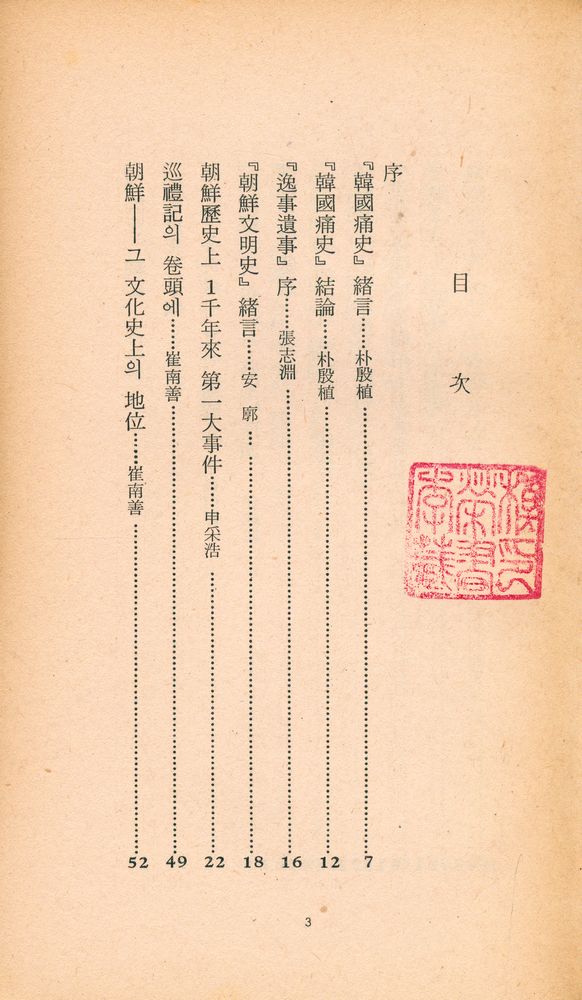 目次
序
『韓國痛史』 緖言……朴殷植……7
『韓國痛史』 結論……朴殷植……12
『逸事遺事』 序……張志淵……16
『朝鮮文明史』 緖言……安 廓……18
朝鮮歷史上 1千年來 第一大事件……申采浩……22
巡禮記의 卷頭에……崔南善……49
朝鮮——그 文化史上의 地位……崔南善……52
3